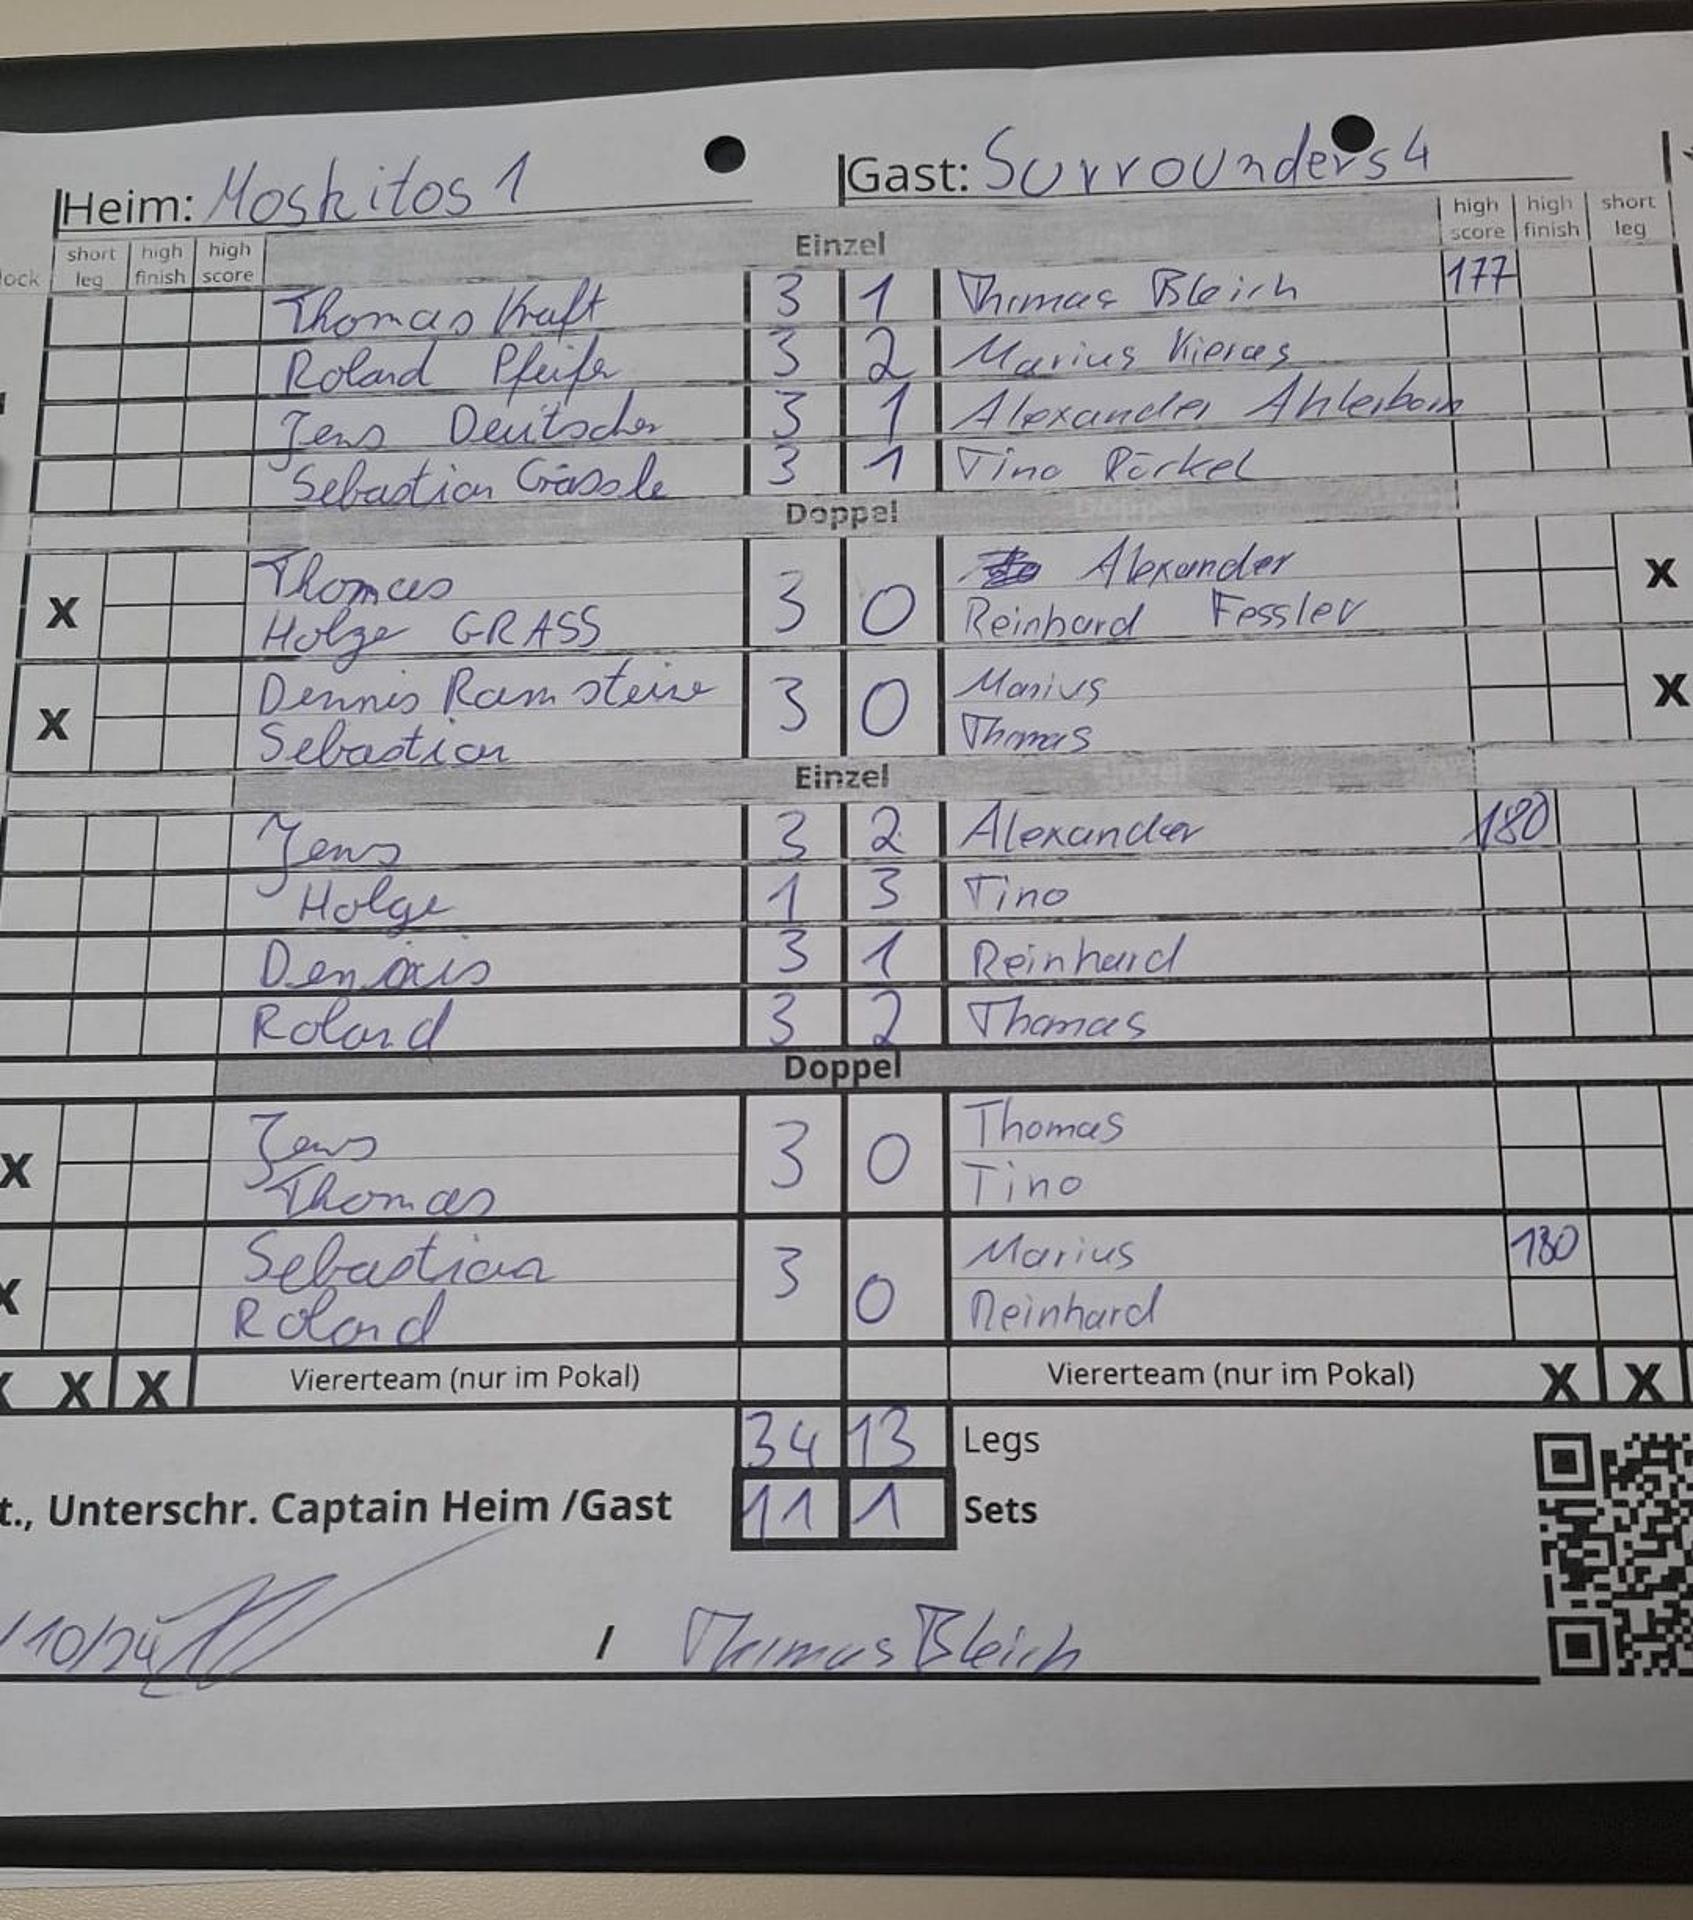 Heim: Moskitos 1 Gast: Surrounders 4
lock short leg high finish high score Einzel high score high finish short leg
Thomas Kraft 3 1 Thomas Bleich 177
Roland Pfeifer 3 2 Marius Kieras
Jens Deutscher 3 1 Alexander Ahlerborn
Sebastian Grässle 3 1 Tino Röckel
Doppel
X Thomas 3 0 Alexander X
Holge GRASS Reinhard Fessler
X Dennis Ramsteine 3 0 Marius X
Sebastian Thomas
Einzel
Jens 3 2 Alexander 180
Holge 1 3 Tino
Dennis 3 1 Reinhard
Roland 3 2 Thomas
Doppel
X Jens 3 0 Thomas
Thomas Tino
X Sebastian 3 0 Marius 180
Roland Reinhard
X X X Viererteam (nur im Pokal) Viererteam (nur im Pokal) X X
34 13 Legs
t., Unterschr. Captain Heim /Gast 11 1 Sets
/10/24 / Thomas Bleich